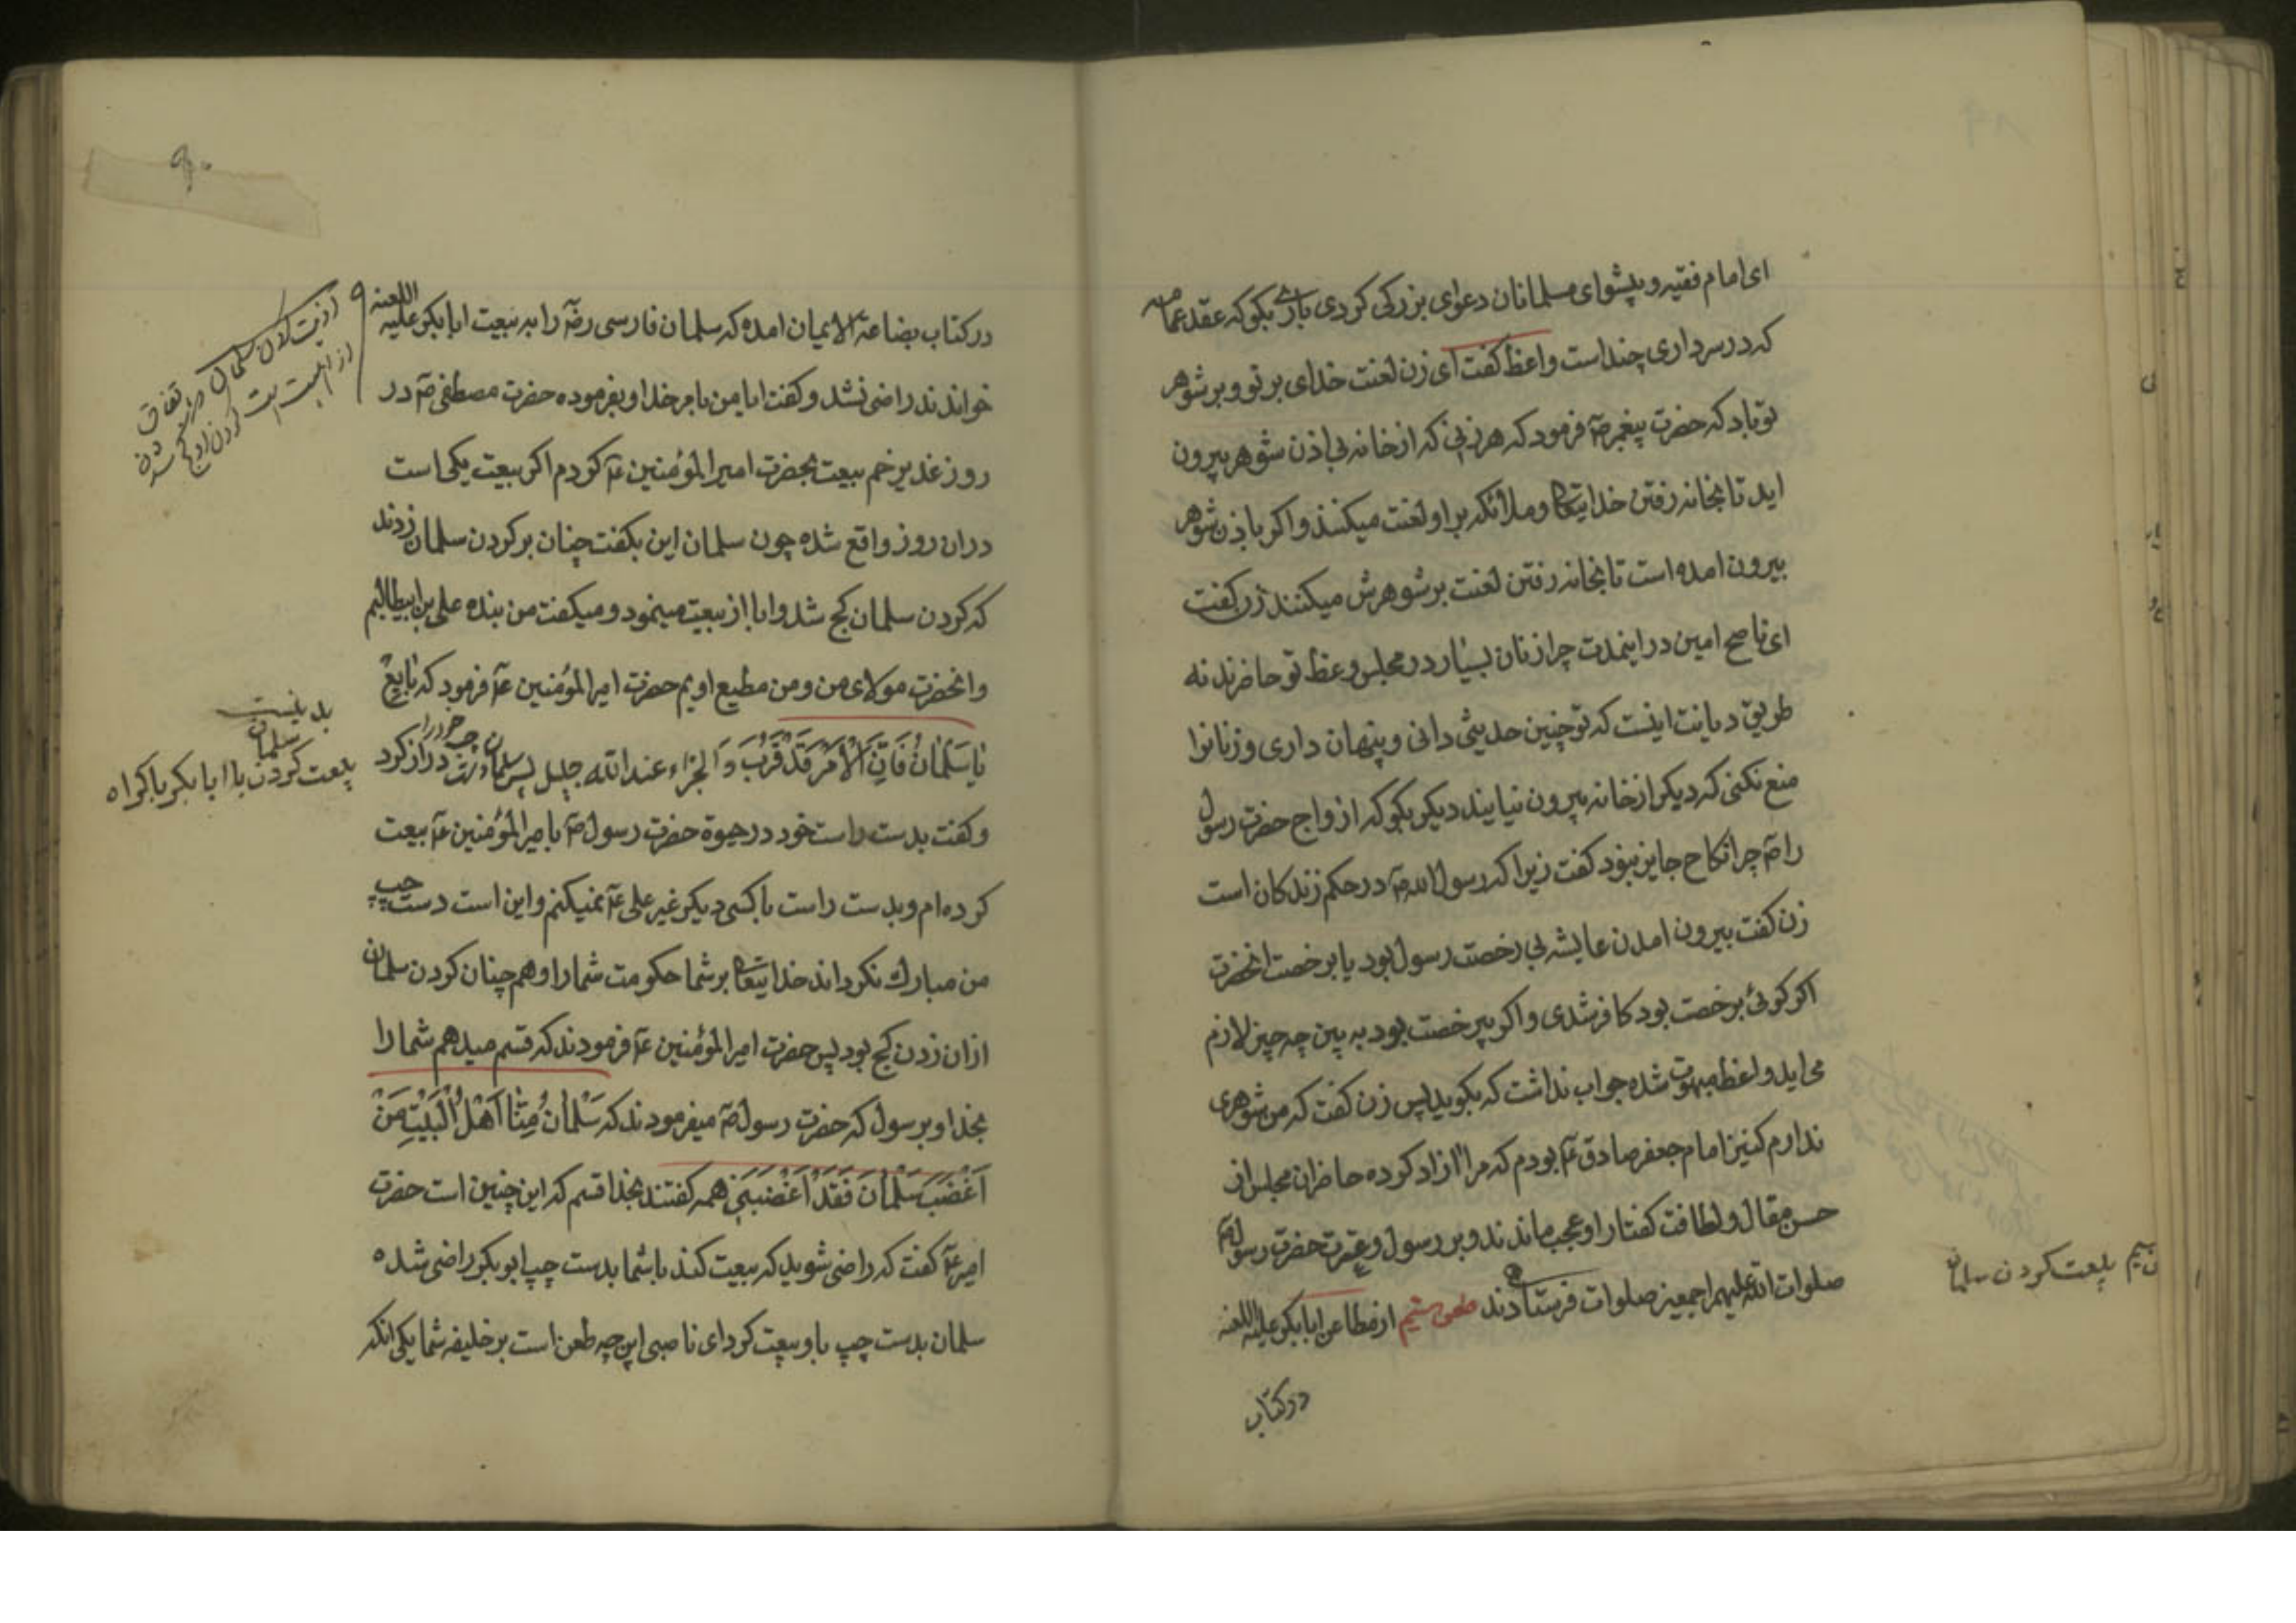 ای امام فقیه و پیشوای مسلمانان دعوای بزرکی کردی باری بکو که عقد عمامه
که در سر داری چند است واعظ کفت ای زن لعنت خدای بر تو و بر شوهر
تو باد که حضرت پیغمبر صٓ فرمود که هر زنی که از خانه بی اذن شوهر بیرون
اید تا بخانه رفتن خدایتعا و ملائکه بر او لعنت میکنند و اکر باذن شوهر
بیرون امده است تا بخانه رفتن لعنت بر شوهرش میکنند زن کفت
ای ناصح امین در اینمدت چرا زنان بسیار در مجلس وعظ تو حاضرند نه
طریق دیانت اینست که تو چنین حدیثی دانی و پنهان داری و زنانرا
منع نکنی که دیکر از خانه بیرون نیایند دیکر بکو که ازواج حضرت رسول
را صٓ چرا نکاح جایز نبود کفت زیرا که رسول الله صٓ در حکم زندکان است
زن کفت بیرون امدن عایشه بی رخصت رسول بود یا برخصت انحضرت
اکر کوئی برخصت بود کافر شدی و اکر بیرخصت بود به بین چه چیز لازم
می اید واعظ مبهوت شده جواب نداشت که بکوید پس زن کفت که من شوهری
ندارم کنیز امام جعفر صادق عٓ بودم که مرا ازاد کرده حاضران مجلس از
حسن مقال و لطافت کفتار او عجب ماندند و بر رسول و عترت حضرت رسول صٓ
صلوات الله علیهم اجمعین صلوات فرستادند طعن ستیم از مطاعن ابابکر علیه اللعنه
در کتاب
بیعت کردن سلمان
۹۰
در کتاب بضاعة الایمان امده که سلمان فارسی رضٓ را به بیعت ابابکر علیه اللعنه
خواندند راضی نشد و کفت ابا من بامر خدا و بفرموده حضرت مصطفی صٓ در
روز غدیر خم بیعت بحضرت امیر المؤمنین عٓ کردم اکر بیعت یکی است
دران روز واقع شده چون سلمان این بکفت چنان بر کردن سلمان زدند
که کردن سلمان کج شد و ابا از بیعت مینمود و میکفت من بنده علی بن ابیطالبم
و انحضرت مولای من و من مطیع اویم حضرت امیر المؤمنین عٓ فرمود که بٰایِعْ
یٰا سَلْمٰانُ فَاِنَّ الْاَمْرَ قَدْ قَرُبَ وَ الجزٰاء عند الله جلیل پس سلمان دست چپ خود را دراز کرد
و کفت بدست راست خود در حیوة حضرت رسول صٓ بامیر المؤمنین عٓ بیعت
کرده ام و بدست راست با کسی دیکر غیر علی عٓ نمیکنم و این است دست چپ
من مبارک نکرداند خدایتعا بر شما حکومت شما را و هم چنان کردن سلمان
ازان زدن کج بود پس حضرت امیر المؤمنین عٓ فرمودند که قسم میدهم شما را
بخدا و برسول که حضرت رسول صٓ میفرمودند که سَلْمٰانُ مِنّٰا اَهْلَ الْبَیْتِ مَنْ
اَغْضَبَ سَلْمٰانَ فَقَدْ اَغْضَبَنِی همه کفتند بخدا قسم که این چنین است حضرت
امیر عٓ کفت که راضی شوید که بیعت کند با شما بدست چپ ابوبکر راضی شده
سلمان بدست چپ باو بیعت کرد ای ناصبی این چه طعن است بر خلیفه شما یکی انکه
سلمان
بیعت کردن با ابابکر باکراه